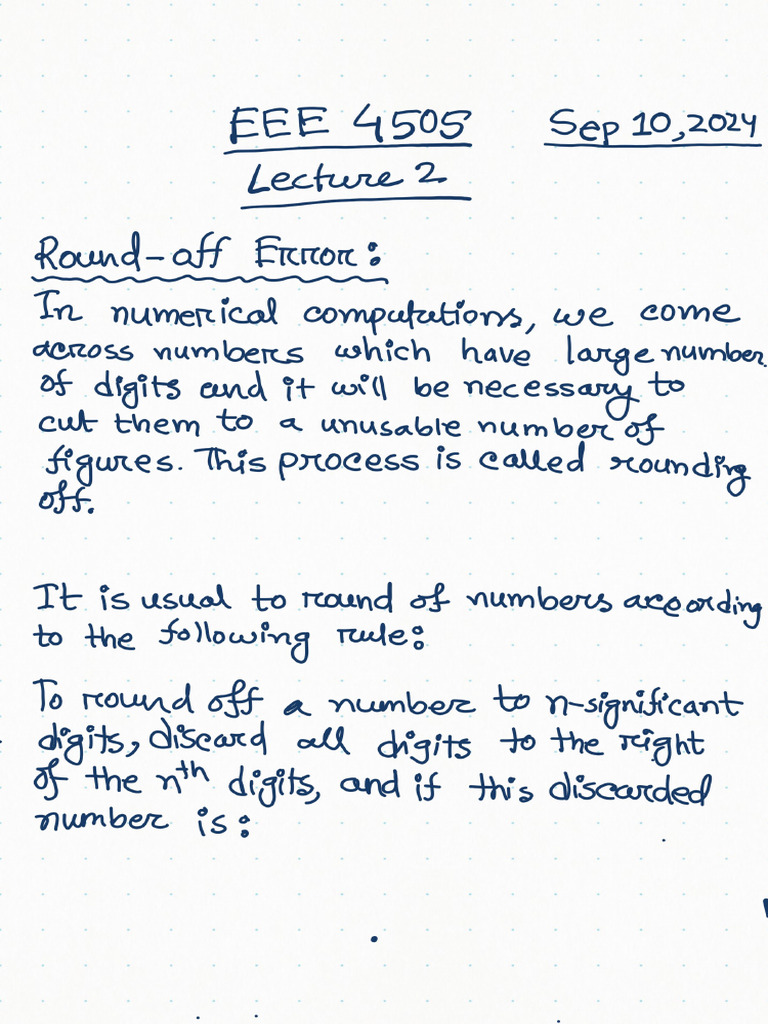 EEE 4505 Sep 10, 2024
Lecture 2
Round-off Error:
In numerical computations, we come
across numbers which have large number
of digits and it will be necessary to
cut them to a unusable number of
figures. This process is called rounding
off.
It is usual to round of numbers according
to the following rule:
To round off a number to n-significant
digits, discard all digits to the right
of the nth digits, and if this discarded
number is: